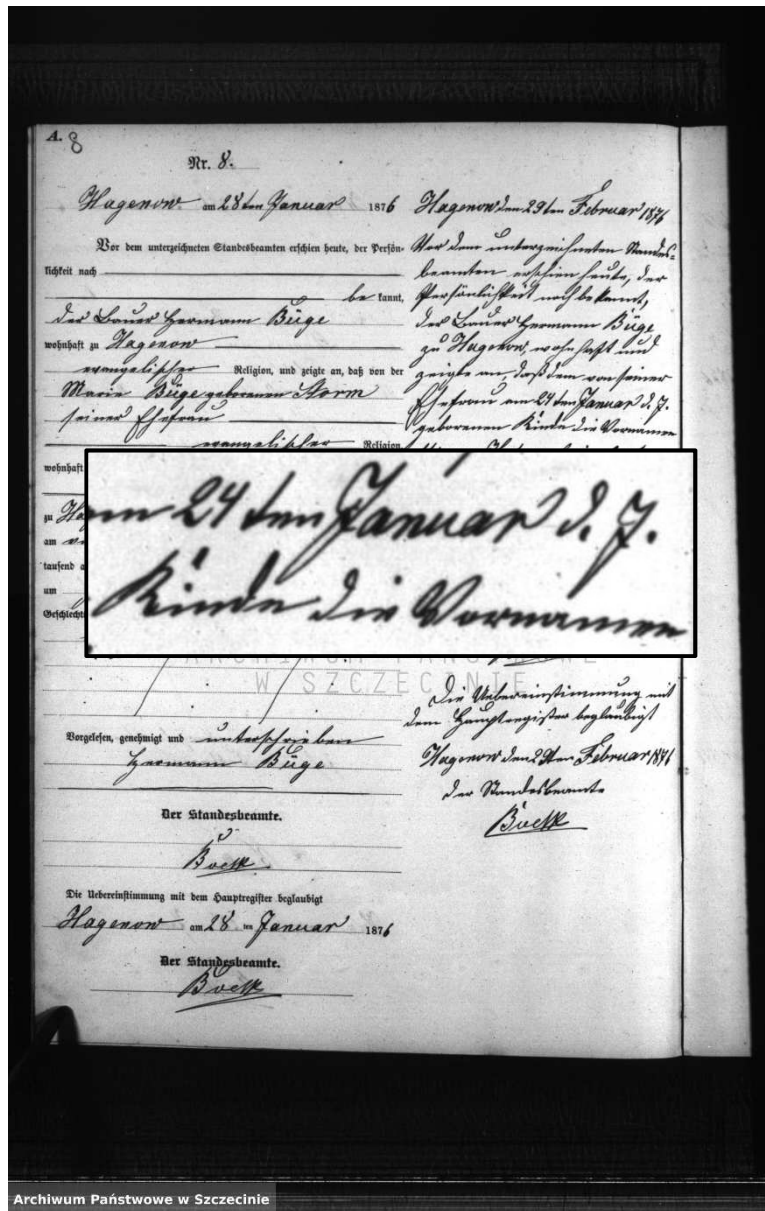 A. 8
Nr. 8.
Hagenow am 28ten Januar 1876
Vor dem unterzeichneten Standesbeamten erschien heute, der Persön-
lichkeit nach
be kannt,
der Bauer Hermann Büge
wohnhaft zu Hagenow
evangelischer Religion, und zeigte an, daß von der
Marie Büge geborenen Storm
seiner Ehefrau
evangelischer Religion
wohnhaft
zu
am
tausend
um
Geschlecht
Vorgelesen, genehmigt und unterschrieben
Hermann Büge
Der Standesbeamte.
Die Uebereinstimmung mit dem Hauptregister beglaubigt
Hagenow am 28 ten Januar 1876
Der Standesbeamte.
Hagenow den 29ten Februar 1876
Vor dem unterzeichneten Standes-
beamten erschien heute, der
Persönlichkeit nach bekannt,
der Bauer Hermann Büge
zu Hagenow, wohnhaft und
zeigte an, daß dem von seiner
Ehefrau am 24ten Januar d. J.
geborenen Kinde die Vornamen
24ten Januar d. J.
Kinde die Vornamen
ARCHIWUM PAŃSTWOWE
W SZCZECINIE
Die Uebereinstimmung mit
dem Hauptregister beglaubigt
Hagenow den 29ten Februar 1876
Der Standesbeamte
Archiwum Państwowe w Szczecinie